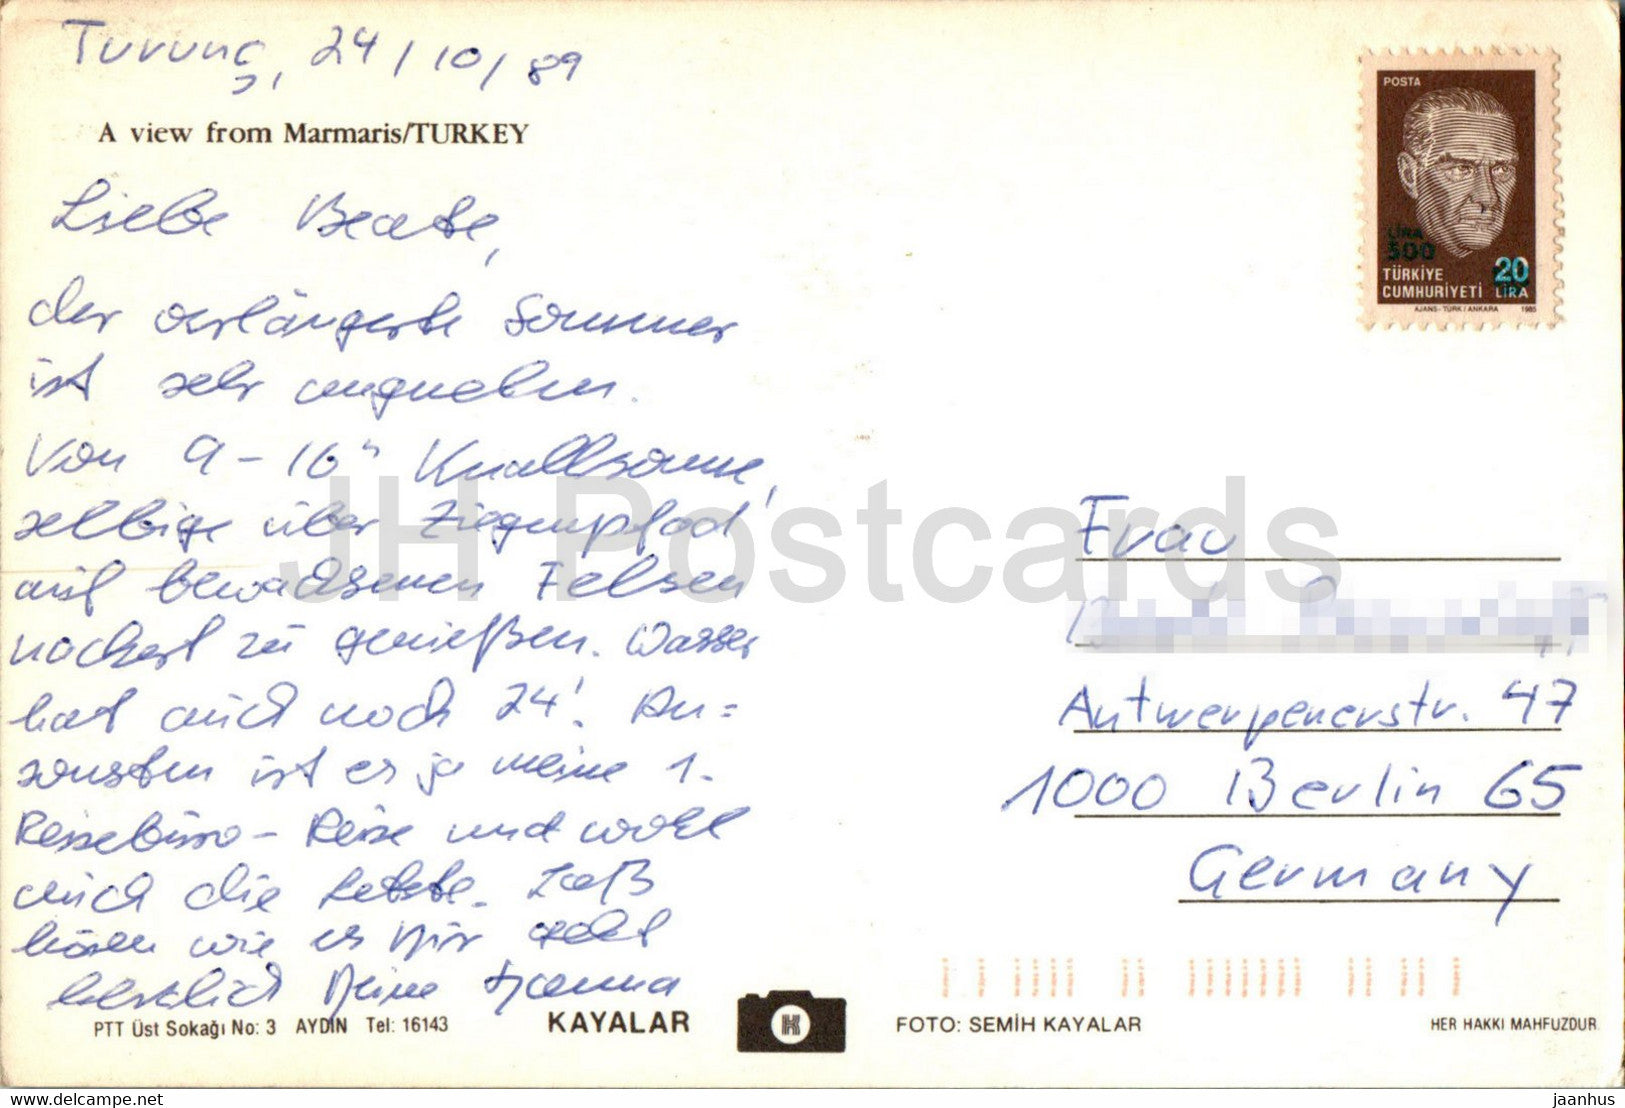 Turunç, 24/10/89
A view from Marmaris/TURKEY
Liebe Beate,
der verlängerte Sommer
ist sehr angenehm.
Von 9-16ʰ Knallsonne,
selbige über Ziegenpfad
auf bewachsenen Felsen
nackert zu genießen. Wasser
hat auch noch 24°. An=
sonsten ist es ja meine 1.
Reisebüro-Reise und wohl
auch die letzte. Laß
hören wie es Dir geht
herzlich Deine Hanna
POSTA
LİRA
500
20
TÜRKİYE
CUMHURİYETİ LİRA
AJANS-TÜRK/ANKARA 1985
JH Postcards
Frau
Antwerpenerstr. 47
1000 Berlin 65
Germany
PTT Üst Sokağı No: 3 AYDIN Tel: 16143
KAYALAR
K
FOTO: SEMİH KAYALAR
HER HAKKI MAHFUZDUR
delcampe.net
jaanhus